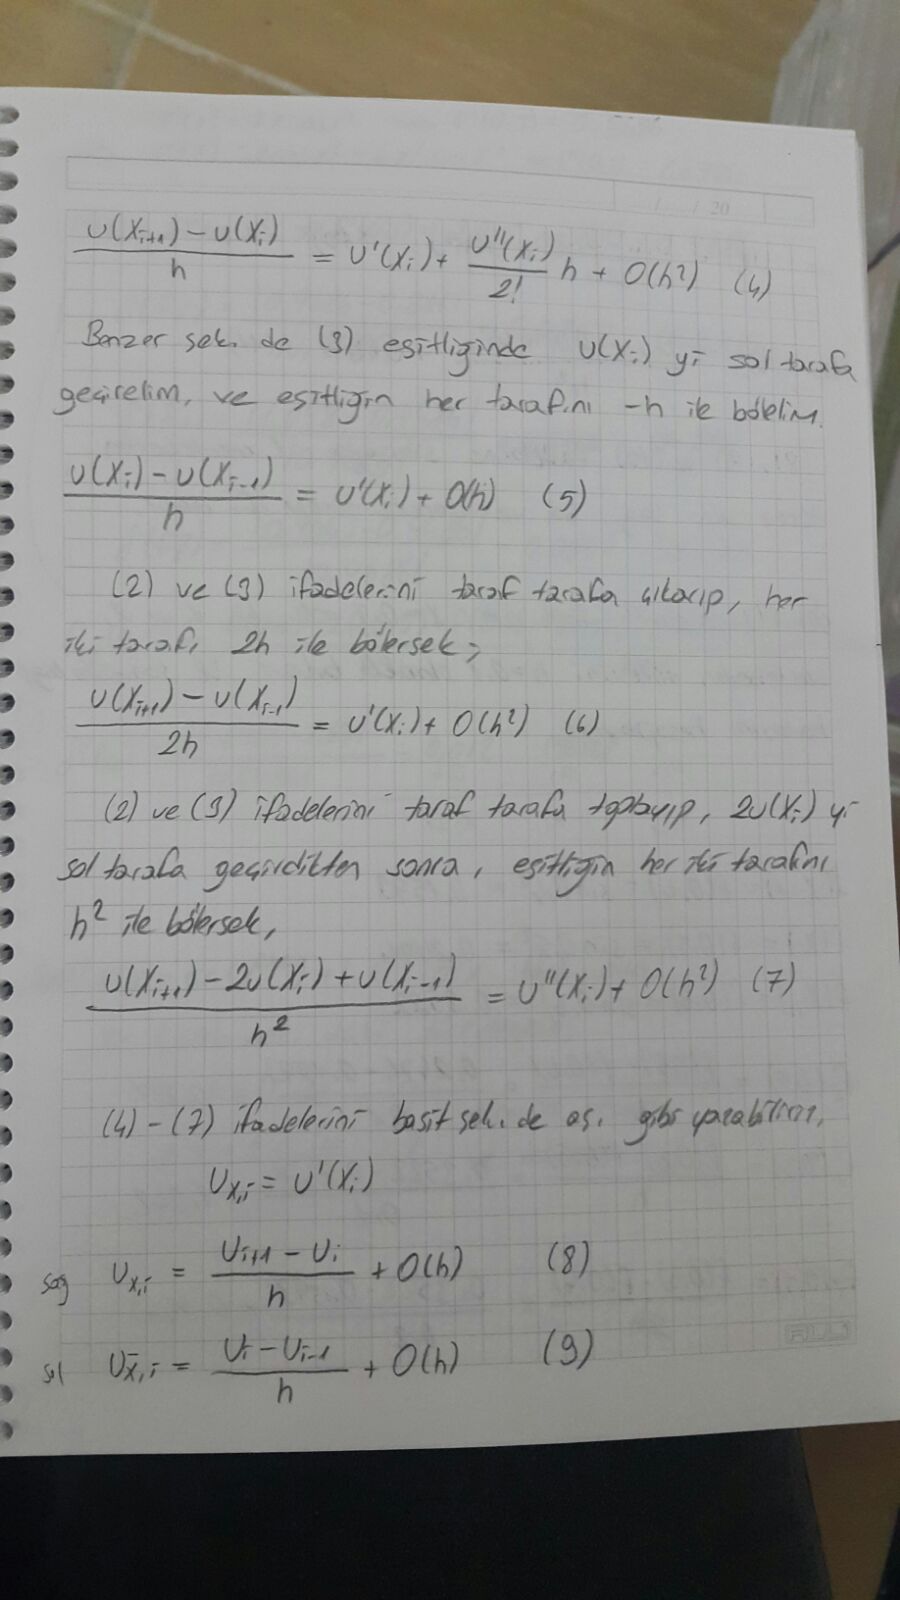 (u(x_{i+1}) - u(x_i)) / h = u'(x_i) + (u''(x_i) / 2!) h + O(h²) (4)
Benzer şek. de (3) eşitliğinde u(x_i) yi sol tarafa
geçirelim, ve eşitliğin her tarafını -h ile bölelim.
(u(x_i) - u(x_{i-1})) / h = u'(x_i) + O(h) (5)
(2) ve (3) ifadelerini taraf tarafa çıkarıp, her
iki tarafı 2h ile bölersek;
(u(x_{i+1}) - u(x_{i-1})) / 2h = u'(x_i) + O(h²) (6)
(2) ve (3) ifadelerini taraf tarafa toplayıp, 2u(x_i) yi
sol tarafa geçirdikten sonra, eşitliğin her iki tarafını
h² ile bölersek,
(u(x_{i+1}) - 2u(x_i) + u(x_{i-1})) / h² = u''(x_i) + O(h²) (7)
(4) - (7) ifadelerini basit şek. de aş. gibi yazabiliriz,
u_{x,i} = u'(x_i)
sağ u_{x,i} = (u_{i+1} - u_i) / h + O(h) (8)
sol u_{x̄,i} = (u_i - u_{i-1}) / h + O(h) (9)